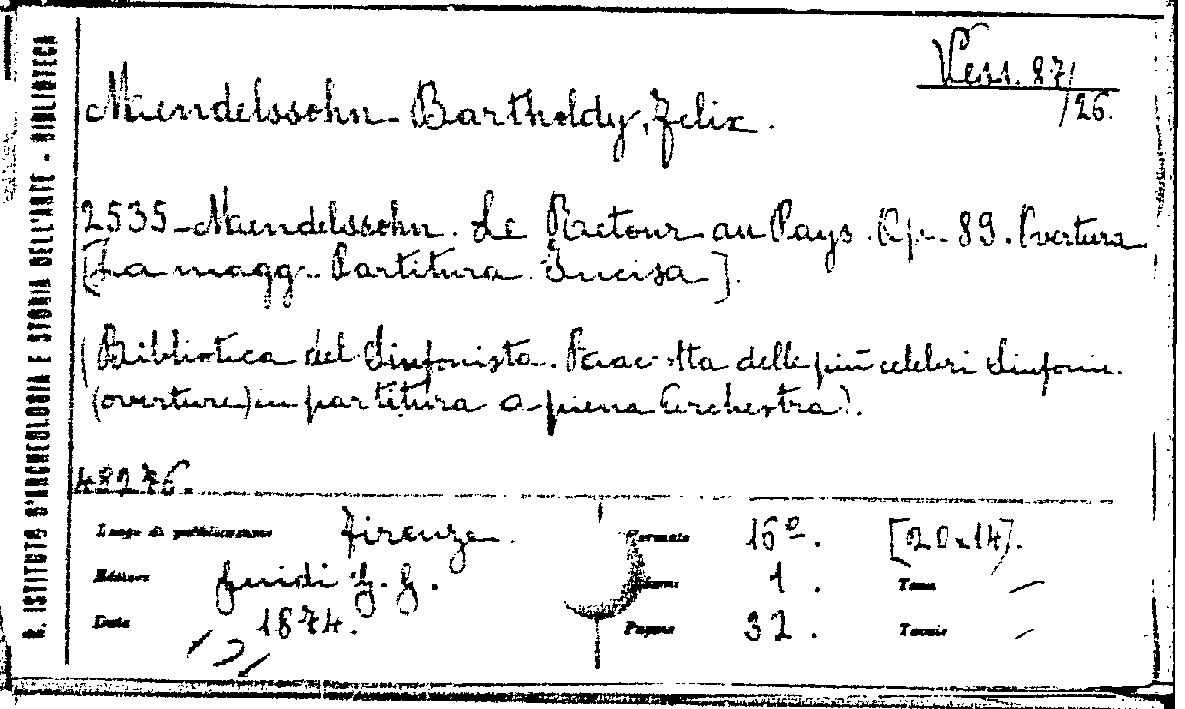 R. ISTITUTO D'ARCHEOLOGIA E STORIA DELL'ARTE - BIBLIOTECA
Vess. 87/
/26.
Mendelssohn-Bartholdy, Felix.
2535-Mendelssohn. Le Raetour au Pays. Op. 89. Overtura
[La magg. Partitura Incisa].
(Biblioteca del Sinfonista. Raccolta delle più celebri Sinfonie.
(overture) in partitura a piena Orchestra).
48276.
Luogo di pubblicazione Firenze. Formato 16°. [20x14].
Editore Guidi G. G. Volumi 1. Tomi —
Data 1874. Pagine 32. Tavole —